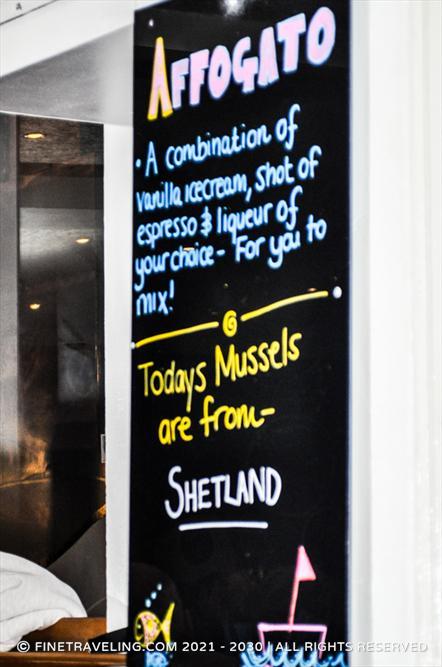 AFFOGATO
• A combination of
vanilla icecream, shot of
espresso & liqueur of
your choice - For you to
mix!
Todays Mussels
are from-
SHETLAND
© FINETRAVELING.COM 2021 - 2030 | ALL RIGHTS RESERVED